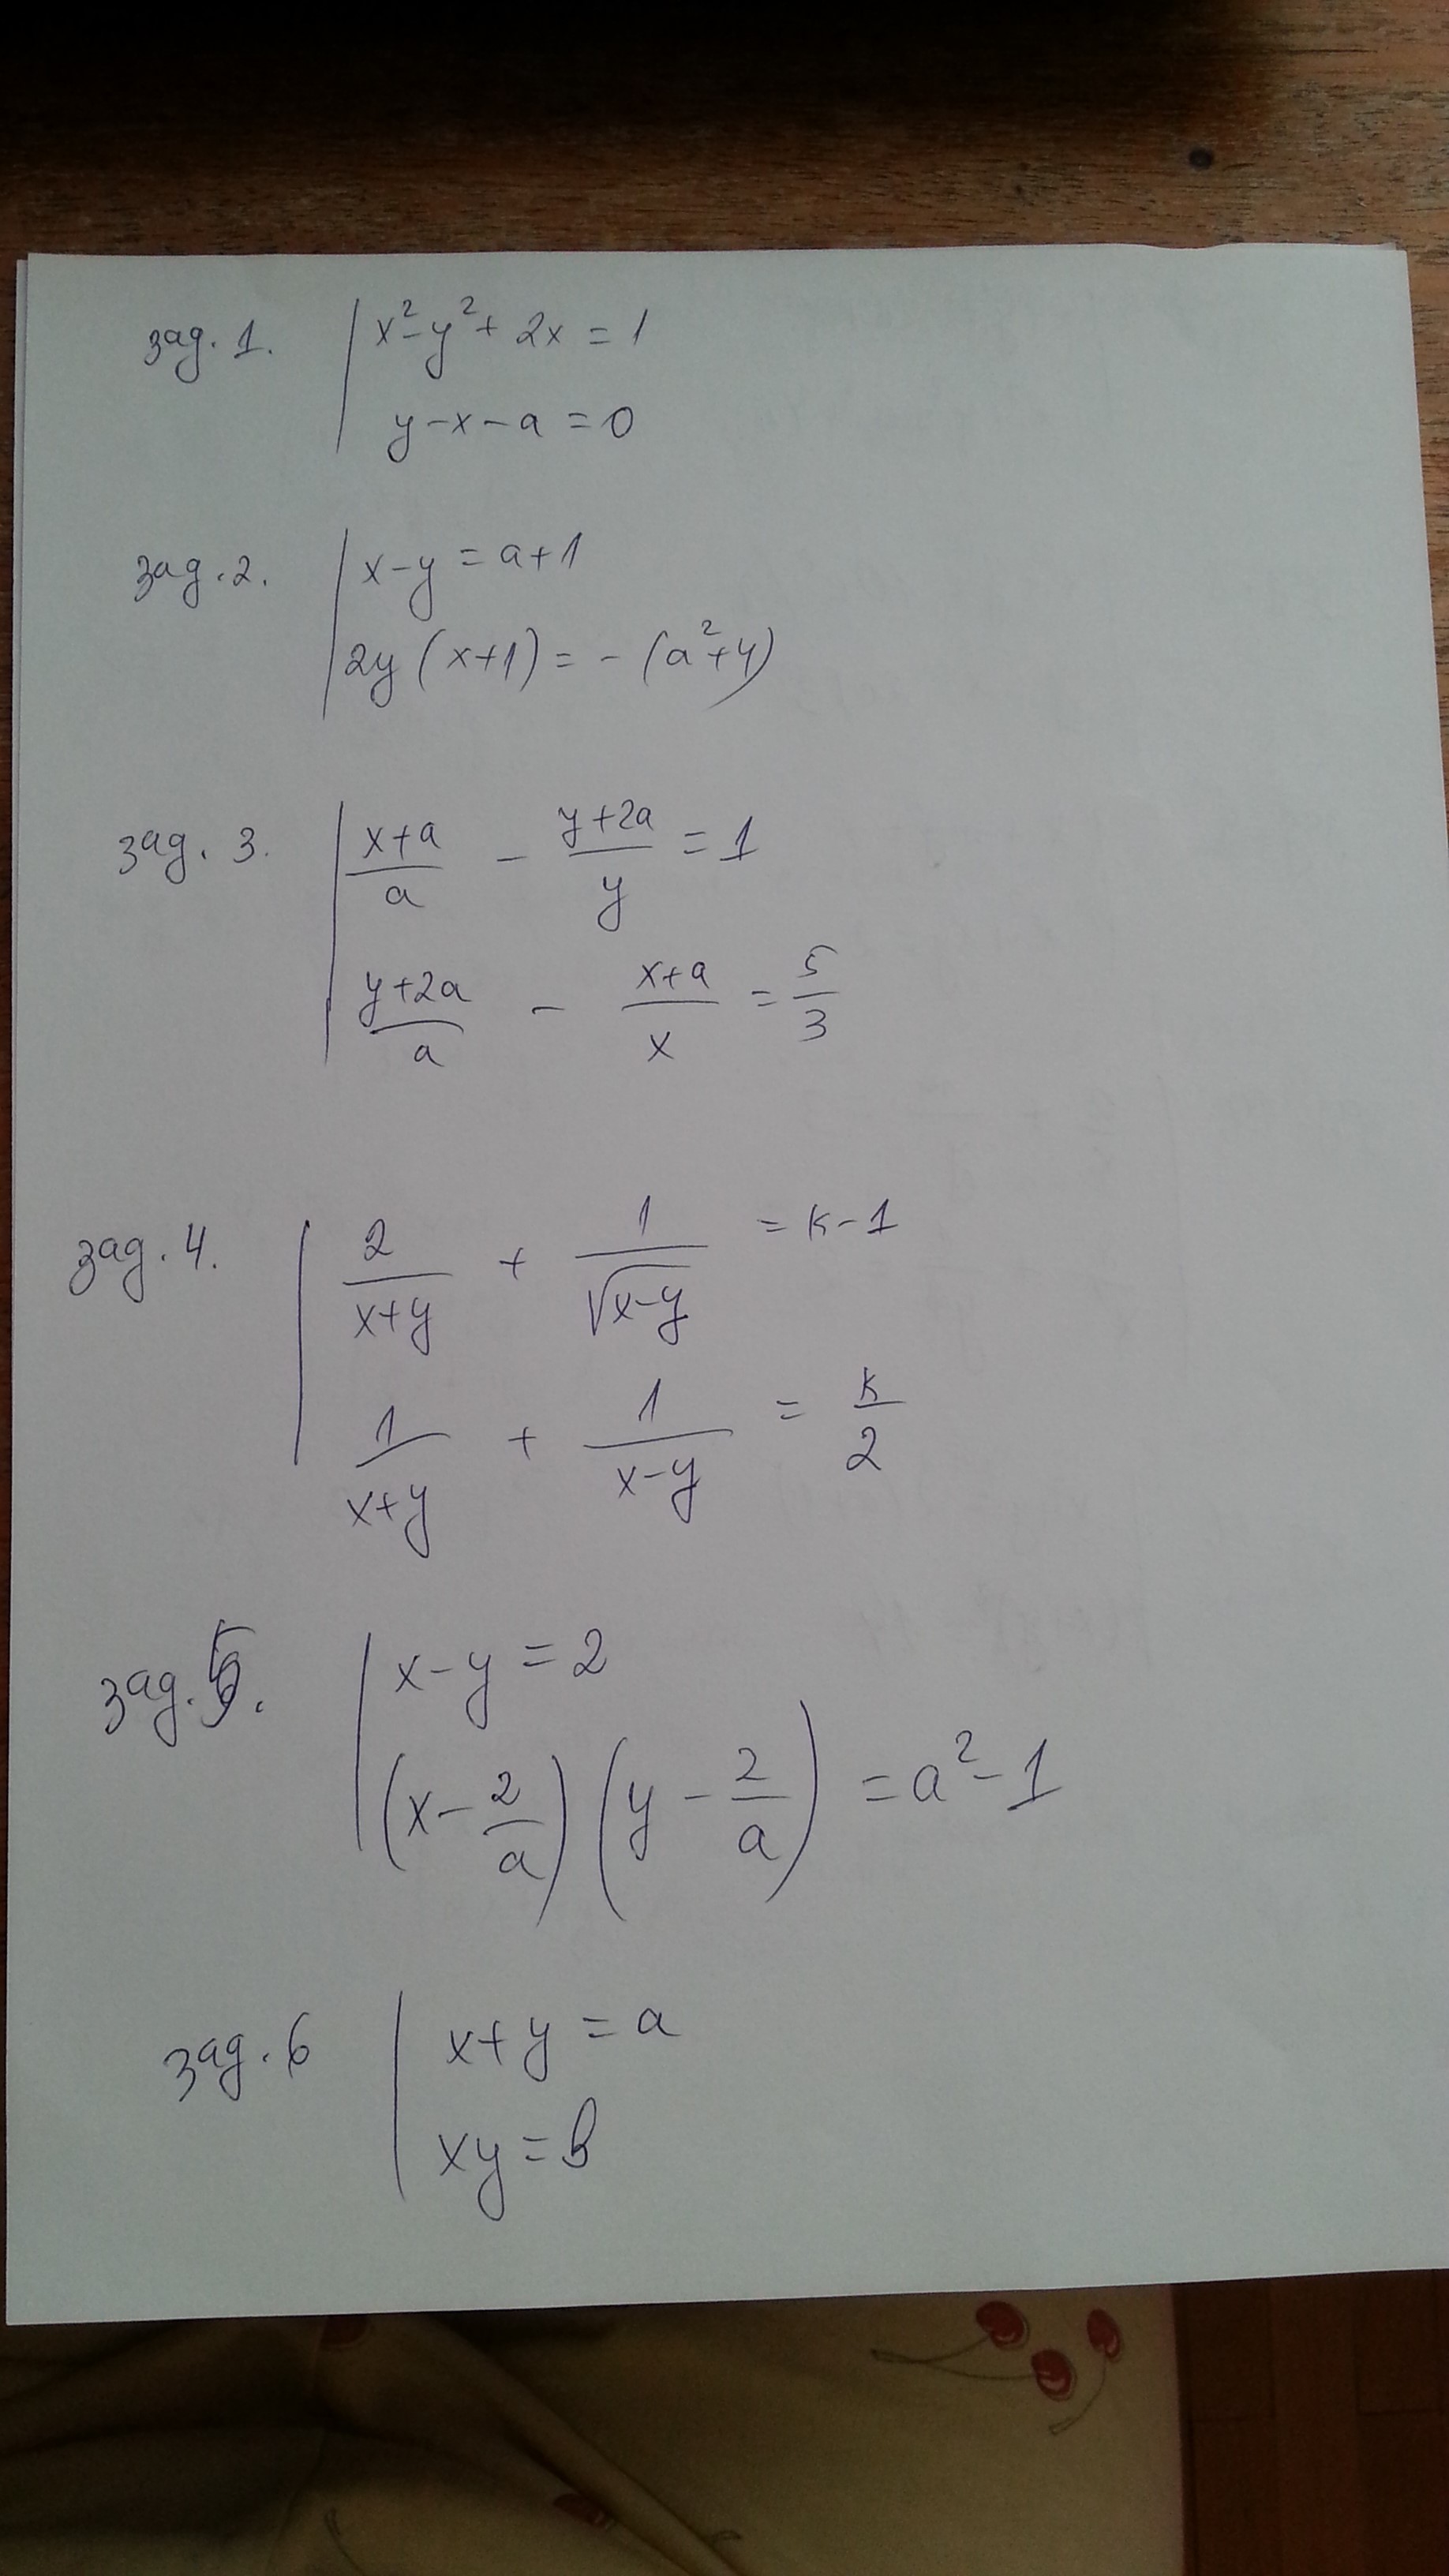 зад. 1. x² - y² + 2x = 1
y - x - a = 0
зад. 2. x - y = a + 1
2y (x + 1) = - (a² + 4)
зад. 3. (x + a)/a - (y + 2a)/y = 1
(y + 2a)/a - (x + a)/x = 5/3
зад. 4. 2/(x + y) + 1/√(x - y) = k - 1
1/(x + y) + 1/(x - y) = k/2
зад. 5. x - y = 2
(x - 2/a) (y - 2/a) = a² - 1
зад. 6 x + y = a
xy = в